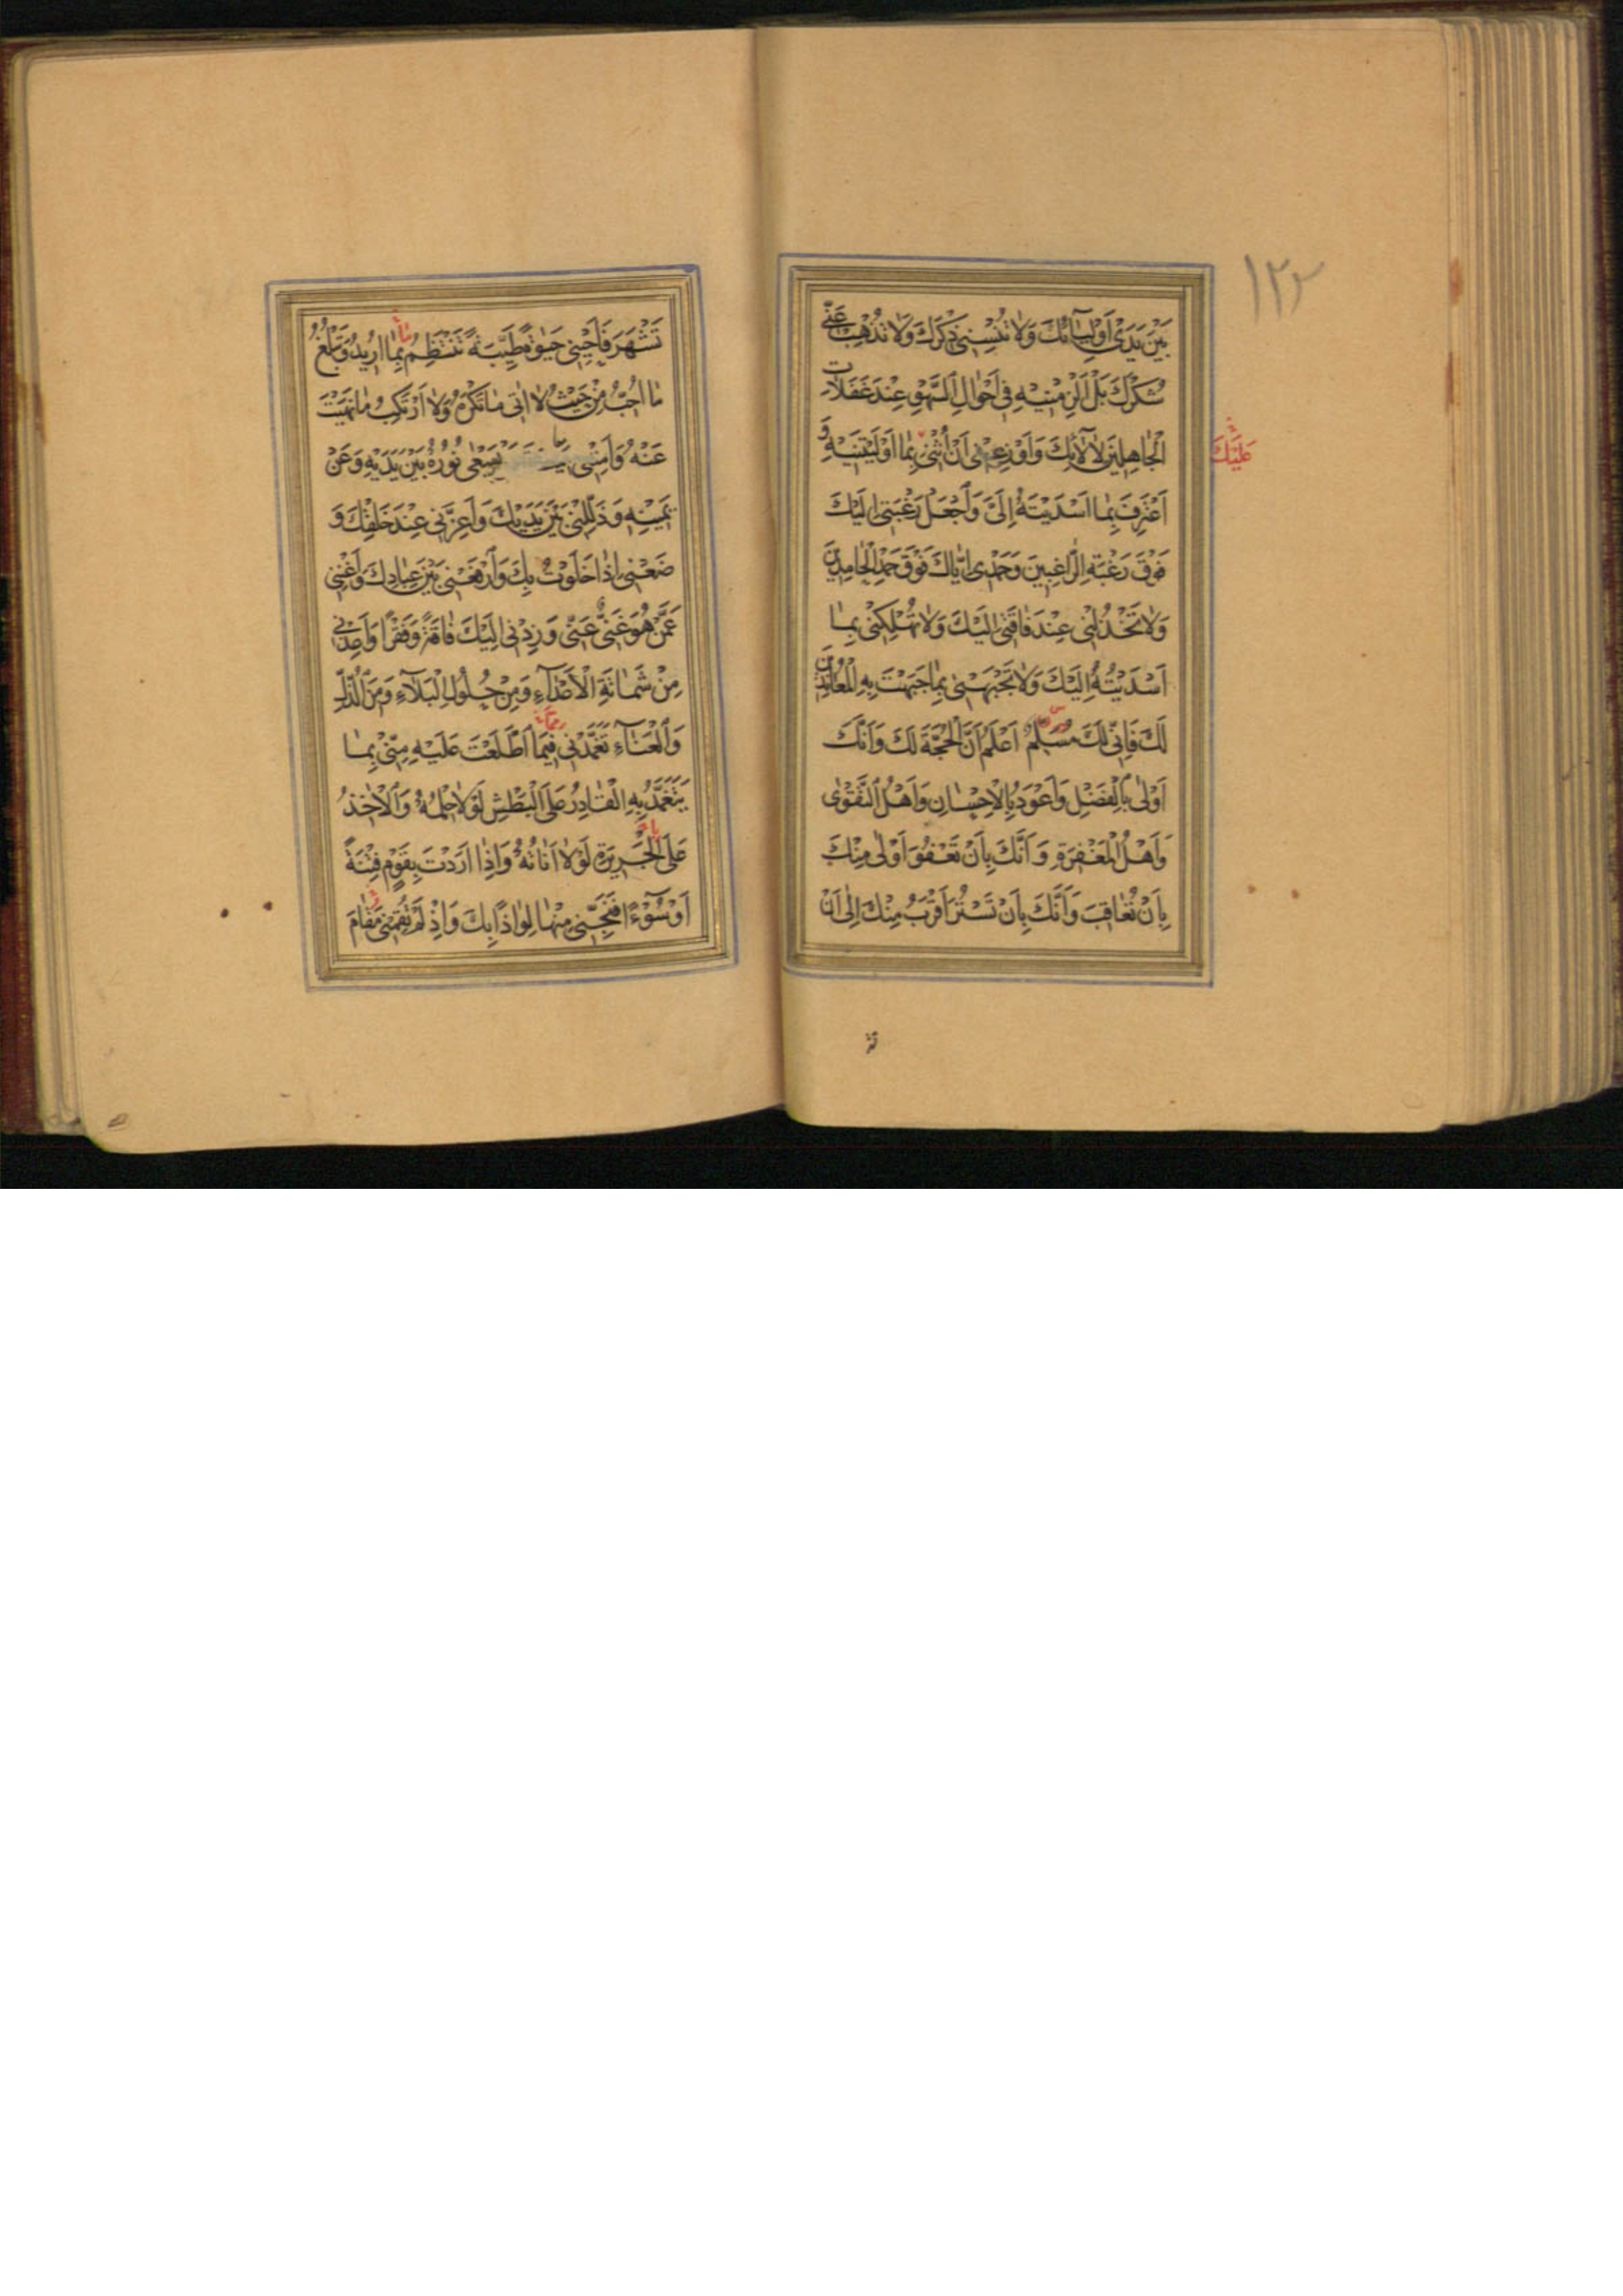 ۱۲۲
بَيْنَ يَدَيْ اَوْلِيآئِكَ وَلا تُنْسِني ذِكْرَكَ وَلا تُذْهِبْ عَنّي
شُكْرَكَ بَلْ اَلْزِمْنيهِ في اَحْوالِ السَّهْوِ عِنْدَ غَفَلاتِ
الْجاهِلينَ لِآلائِكَ وَاَوْزِعْني اَنْ اُثْنِيَ بِما اَوْلَيْتَنيهِ وَ
عَلَيْكَ
اَعْتَرِفَ بِما اَسْدَيْتَهُ اِلَيَّ وَاجْعَلْ رَغْبَتي اِلَيْكَ
فَوْقَ رَغْبَةِ الرّاغِبينَ وَحَمْدي اِيّاكَ فَوْقَ حَمْدِ الْحامِدينَ
وَلا تَخْذُلْني عِنْدَ فاقَتي اِلَيْكَ وَلا تُهْلِكْني بِما
اَسْدَيْتُهُ اِلَيْكَ وَلا تَجْبَهْني بِما جَبَهْتَ بِهِ الْمُعانِدينَ
لَكَ فَاِنّي لَكَ مُسَلِّمٌ اَعْلَمُ اَنَّ الْحُجَّةَ لَكَ وَاَنَّكَ
اَوْلى بِالْفَضْلِ وَاَعْوَدُ بِالْاِحْسانِ وَاَهْلُ التَّقْوى
وَاَهْلُ الْمَغْفِرَةِ وَاَنَّكَ بِاَنْ تَعْفُوَ اَوْلى مِنْكَ
بِاَنْ تُعاقِبَ وَاَنَّكَ بِاَنْ تَسْتُرَ اَقْرَبُ مِنْكَ اِلى اَنْ
تَشْهَرَ فَاَحْيِني حَيوةً طَيِّبَةً تَنْتَظِمُ بِما اُريدُ وَتَبْلُغُ
ما اُحِبُّ مِنْ حَيْثُ لا اتي ما تَكْرَهُ وَلا اَرْتَكِبُ ما نَهَيْتَ
عَنْهُ وَاَمِتْني يَسْعى نُورُهُ بَيْنَ يَدَيْهِ وَعَنْ
يَمينِهِ وَذَلِّلْني بَيْنَ يَدَيْكَ وَاَعِزَّني عِنْدَ خَلْقِكَ وَ
ضَعْني اِذا خَلَوْتُ بِكَ وَارْفَعْني بَيْنَ عِبادِكَ وَاَغْنِني
عَمَّنْ هُوَ غَنِيٌّ عَنّي وَزِدْني اِلَيْكَ فاقَةً وَفَقْرًا وَاَعِذْني
مِنْ شَماتَةِ الْاَعْدآءِ وَمِنْ حُلُولِ الْبَلآءِ وَمِنَ الذُّلِّ
وَالْعَنآءِ تَغَمَّدْني فيمَا اطَّلَعْتَ عَلَيْهِ مِنّي بِما
يَتَغَمَّدُ بِهِ الْقادِرُ عَلَى الْبَطْشِ لَوْلا حِلْمُهُ وَالْاخِذُ
عَلَى الْجَريرَةِ لَوْلا اَناتُهُ وَاِذا اَرَدْتَ بِقَوْمٍ فِتْنَةً
اَوْ سُوْءًا فَنَجِّني مِنْها لِواذًا بِكَ وَاِذْ لَمْ تُقِمْني مَقامَ